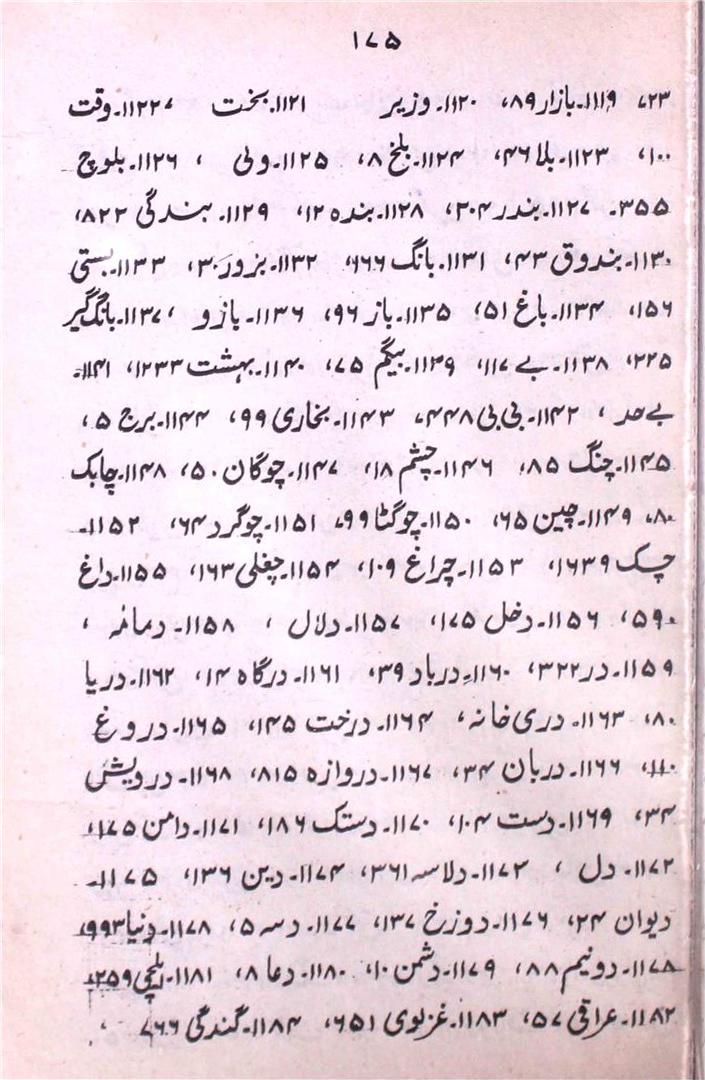 ۱۷۵
۲۳، ۱۱۱۹۔بازار۸۹، ۱۱۲۰۔وزیر ۱۱۲۱۔بخت ۱۱۲۲۷۔وقت
۱۰۰، ۱۱۲۳۔بلا۴۶، ۱۱۲۴۔بلخ۸، ۱۱۲۵۔ولی ، ۱۱۲۶۔بلوچ
۳۵۵۔ ۱۱۲۷۔بندر۲۰۴، ۱۱۲۸۔بندہ۱۲، ۱۱۲۹۔ بندگی۸۲۲،
۱۱۳۰۔بندوق۴۳، ۱۱۳۱۔بانگ۶۶۶، ۱۱۳۲۔بزور۳۰، ۱۱۳۳۔بستی
۱۵۶، ۱۱۳۴۔باغ۵۱، ۱۱۳۵۔باز۹۶، ۱۱۳۶۔بازو ، ۱۱۳۷۔بانگگیر
۲۲۵، ۱۱۳۸۔بے۱۱۷، ۱۱۳۹۔بیگم۷۵، ۱۱۴۰۔بہشت۱۲۳۳، ۱۱۴۱۔
بےحد ، ۱۱۴۲۔بی بی۴۴۸، ۱۱۴۳۔بخاری۹۹، ۱۱۴۴۔برج۵،
۱۱۴۵۔چنگ۸۵، ۱۱۴۶۔چشم۱۸، ۱۱۴۷۔چوگان۵۰، ۱۱۴۸۔چابک
۸۰، ۱۱۴۹۔چین۶۵، ۱۱۵۰۔چوگٹا۹۹، ۱۱۵۱۔چوگرد۶۴، ۱۱۵۲۔
چک۱۶۳۹، ۱۱۵۳۔چراغ۱۰۹، ۱۱۵۴۔چغلی۱۶۳، ۱۱۵۵۔داغ
۵۹۰، ۱۱۵۶۔دخل۱۷۵، ۱۱۵۷۔دلال ، ۱۱۵۸۔دمامہ ،
۱۱۵۹۔در۳۲۲، ۱۱۶۰۔درباد۳۹، ۱۱۶۱۔درگاہ۱۴، ۱۱۶۲۔دریا
۸۰، ۱۱۶۳۔دری خانہ، ۱۱۶۴۔درخت۱۴۵، ۱۱۶۵۔دروغ
۱۱۰، ۱۱۶۶۔دربان۳۴، ۱۱۶۷۔دروازہ۸۱۵، ۱۱۶۸۔درویش
۳۴، ۱۱۶۹۔دست۱۰۴، ۱۱۷۰۔دستک۱۸۶، ۱۱۷۱۔دامن۱۷۵،
۱۱۷۲۔دل ، ۱۱۷۳۔دلاسہ۳۶۱، ۱۱۷۴۔دین۱۳۶، ۱۱۷۵۔
دیوان۲۴، ۱۱۷۶۔دوزخ۱۳۷، ۱۱۷۷۔دسہ۵، ۱۱۷۸۔دنیا۹۹۳،
۱۱۷۸۔دونیم۸۸، ۱۱۷۹۔دشمن۱۰، ۱۱۸۰۔دعا۸، ۱۱۸۱۔ایلچی۲۵۹،
۱۱۸۲۔عراقی۵۷، ۱۱۸۳۔غزنوی۶۵۱، ۱۱۸۴۔گندگی۷۶۶ ،